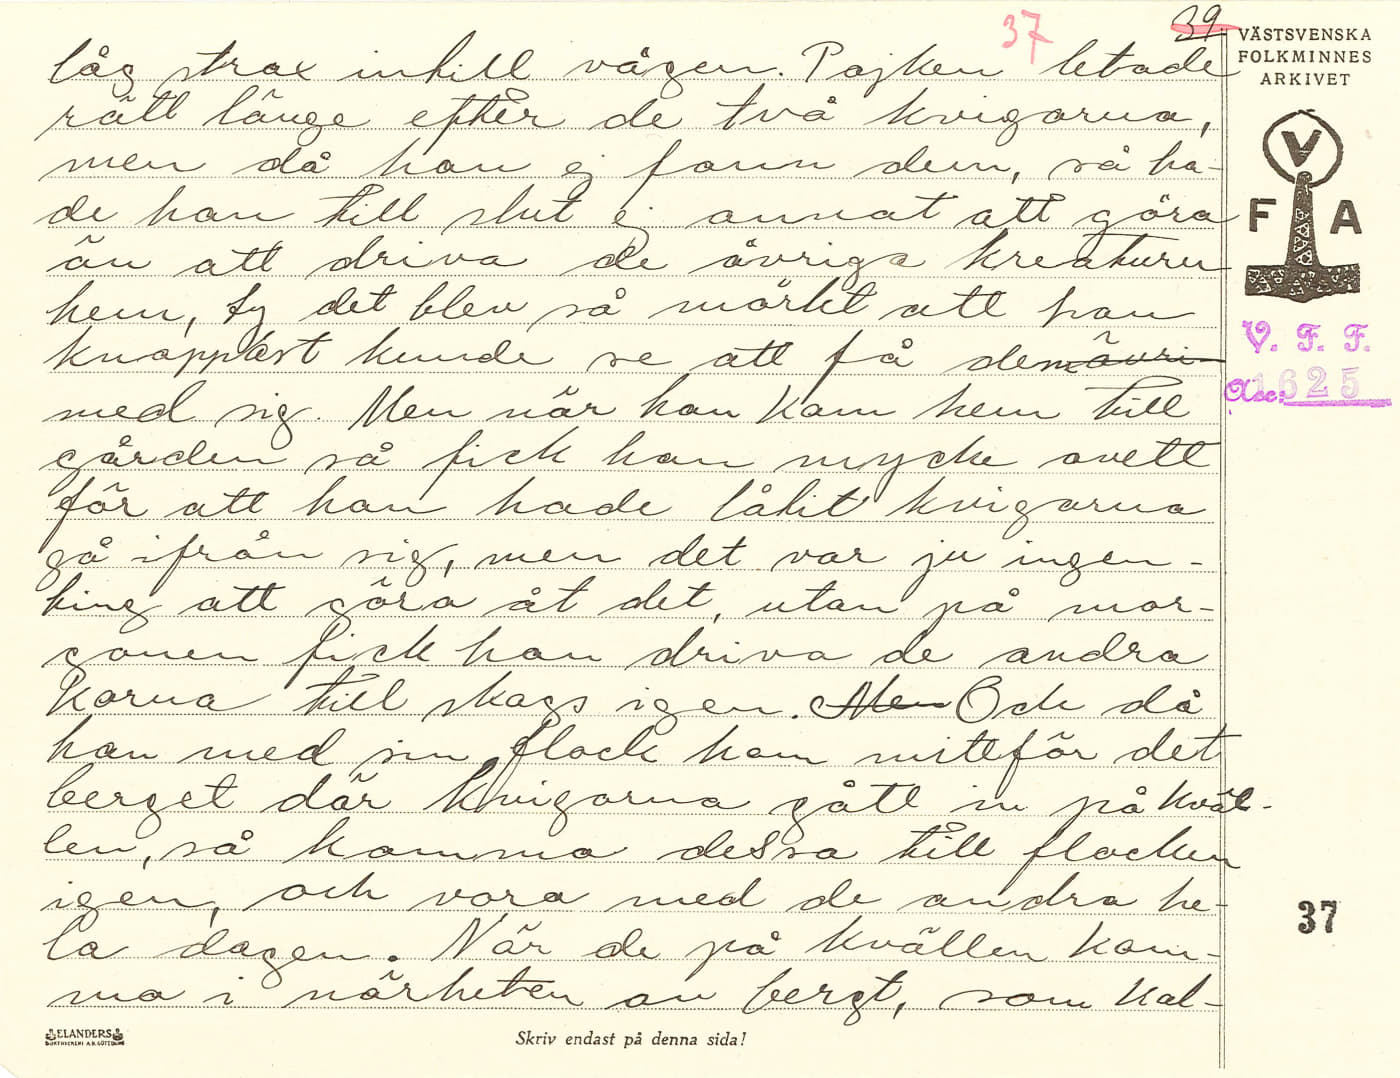 37
39.
VÄSTSVENSKA
FOLKMINNES
ARKIVET
låg strax intill vägen. Pojken letade
rätt länge efter de två kvigorna,
men då han ej fann dem, så ha-
de han till slut ej annat att göra
än att driva de övriga kreaturen
hem, ty det blev så mörkt att han
knappast kunde se att få dem övri-
med sig. Men när han kom hem till
gården så fick han mycke ovett
för att han hade låtit kvigorna
gå ifrån sig, men det var ju ingen-
ting att göra åt det, utan på mor-
gonen fick han driva de andra
korna till skogs igen. Men Och då
han med sin flock kom mitteför det
berget där kvigorna gått in på kväl-
len, så komma dessa till flocken
igen, och vora med de andra he-
la dagen. När de på kvällen kom-
ma i närheten av bergt, som kal-
V
F A
V. F. F.
Acc. 1625
37
ELANDERS
BOKTRYCKERI A.B. GÖTEBORG
Skriv endast på denna sida!